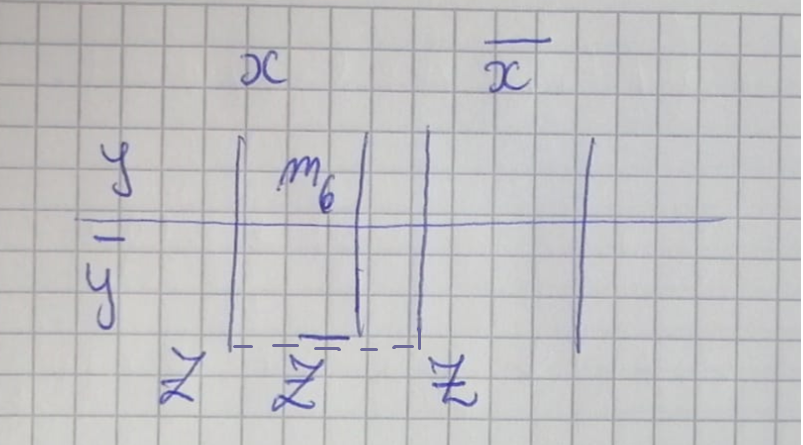 x x̅
y m₆
y̅
Z Z̅ Z